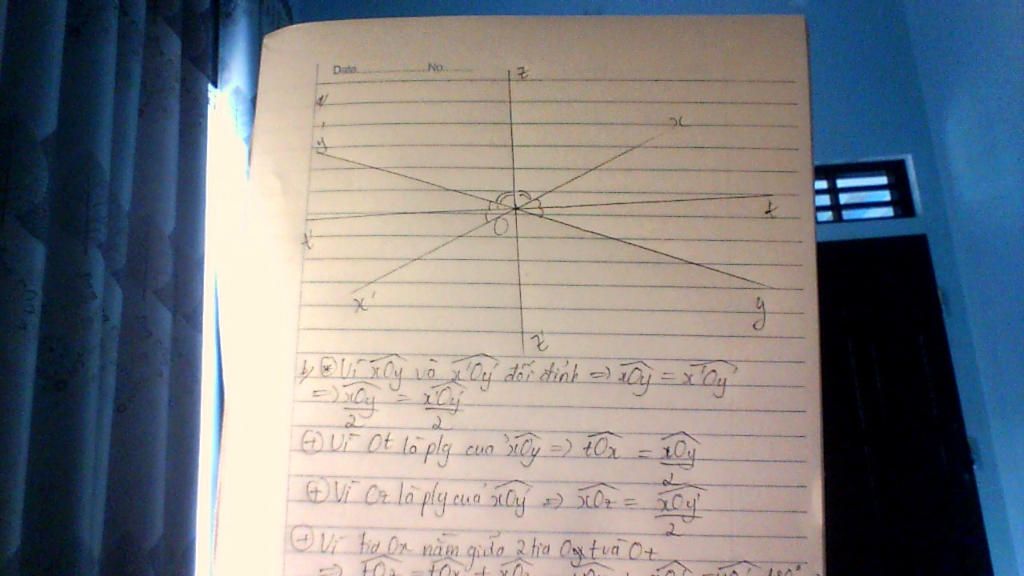 Date No
z
x
y'
t
t'
O
x'
y
z'
b, * Vì xOy và x'Oy' đối đỉnh => xOy = x'Oy'
=> xOy/2 = x'Oy'/2
+ Vì Ot là plg của xOy => tOx = xOy/2
+ Vì Oz là plg của xOy' => xOz = xOy'/2
+ Vì tia Ox nằm giữa 2 tia Oz và Ot
=> tOz = tOx + xOz